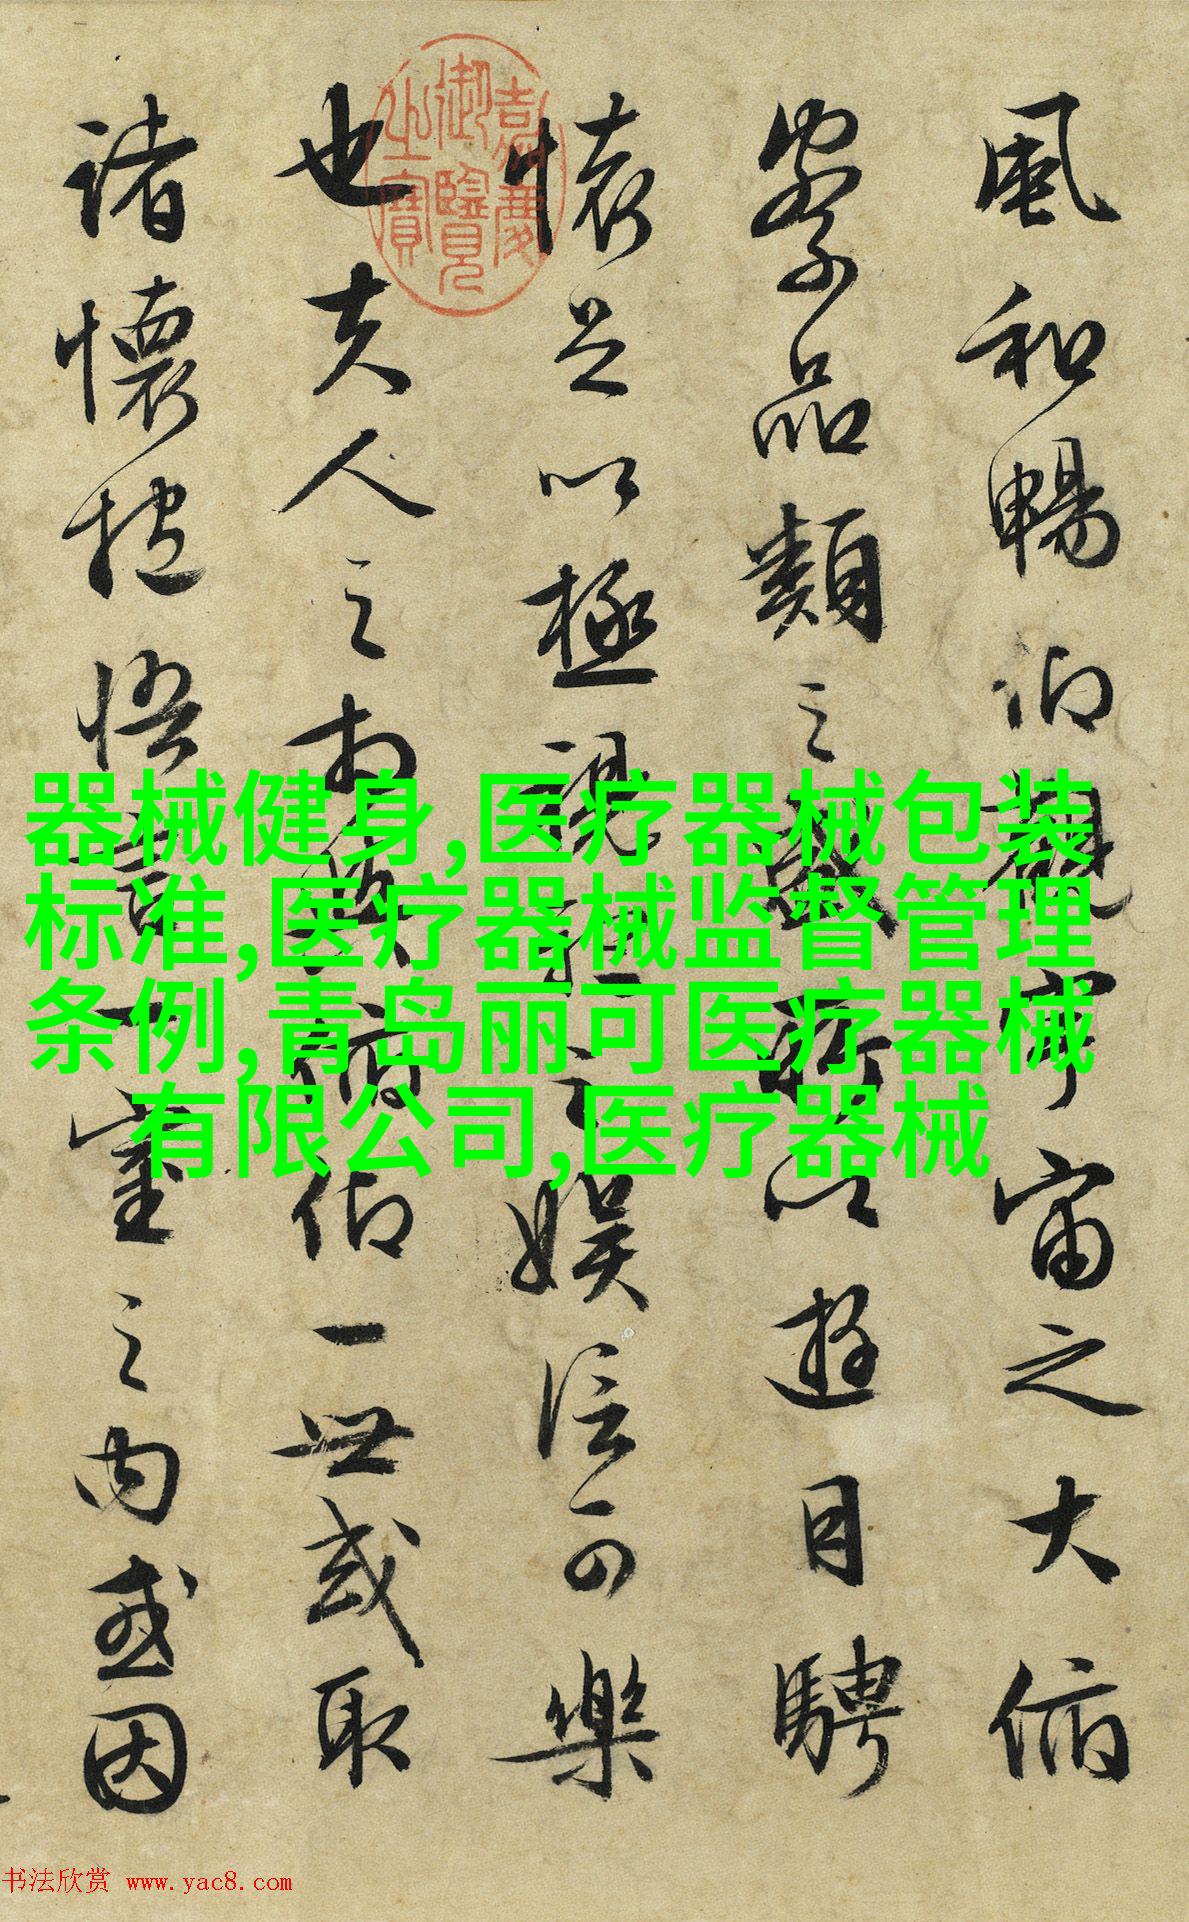 風和暢仰觀宇宙之大俯
察品類之盛所以遊目騁
懷足以極視聽之娛信可樂
也夫人之相與俯仰一世或取
諸懷抱悟言一室之內或因
嘉慶
御覽
之寶
器械健身,医疗器械包装
标准,医疗器械监督管理
条例,青岛丽可医疗器械
有限公司,医疗器械
书法欣赏 www.yac8.com